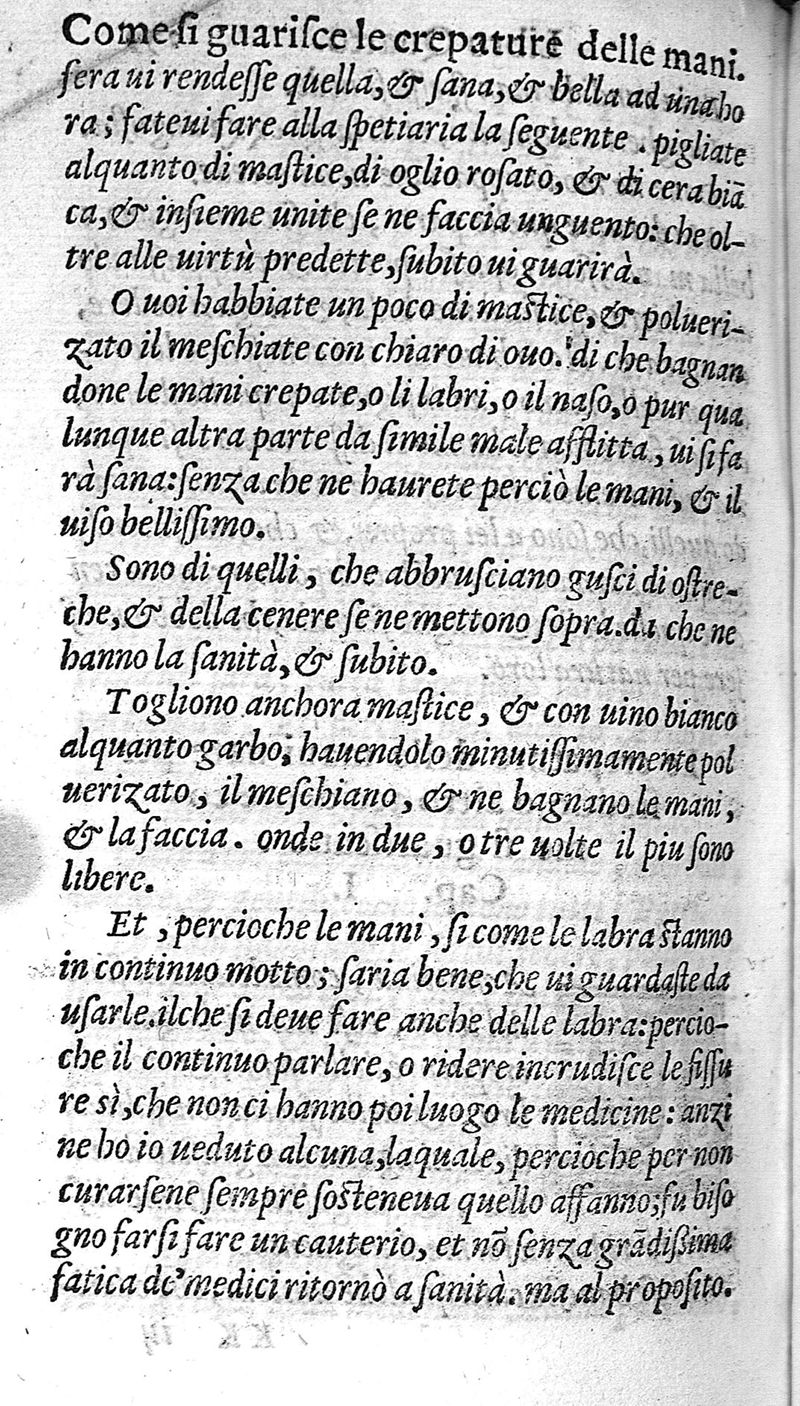 Come ſi guariſce le crepature delle mani.
ſera ui rendeſſe quella, & ſana, & bella ad una ho
ra; fateui fare alla ſpetiaria la ſeguente. pigliate
alquanto di maſtice, di oglio roſato, & di cera biā
ca, & inſieme unite ſe ne faccia unguento: che ol-
tre alle uirtù predette, ſubito ui guarirà.
O uoi habbiate un poco di maſtice, & polueri-
zato il meſchiate con chiaro di ouo. di che bagnan
done le mani crepate, o li labri, o il naſo, o pur qua
lunque altra parte da ſimile male afflitta, ui ſi fa
rà ſana: ſenza che ne haurete perciò le mani, & il
uiſo belliſſimo.
Sono di quelli, che abbruſciano guſci di oſtre-
che, & della cenere ſe ne mettono ſopra. da che ne
hanno la ſanità, & ſubito.
Togliono anchora maſtice, & con uino bianco
alquanto garbo, hauendolo minutiſſimamente pol
uerizato, il meſchiano, & ne bagnano le mani,
& la faccia. onde in due, o tre uolte il piu ſono
libere.
Et, percioche le mani, ſi come le labra ſtanno
in continuo motto; ſaria bene, che ui guardaſte da
uſarle. ilche ſi deue fare anche delle labra: percio-
che il continuo parlare, o ridere incrudiſce le fiſſu
re sì, che non ci hanno poi luogo le medicine: anzi
ne ho io ueduto alcuna, laquale, percioche per non
curarſene ſempre ſoſteneua quello affanno; fu biſo
gno farſi fare un cauterio, et nō ſenza grādißima
fatica de' medici ritornò a ſanità. ma al propoſito.